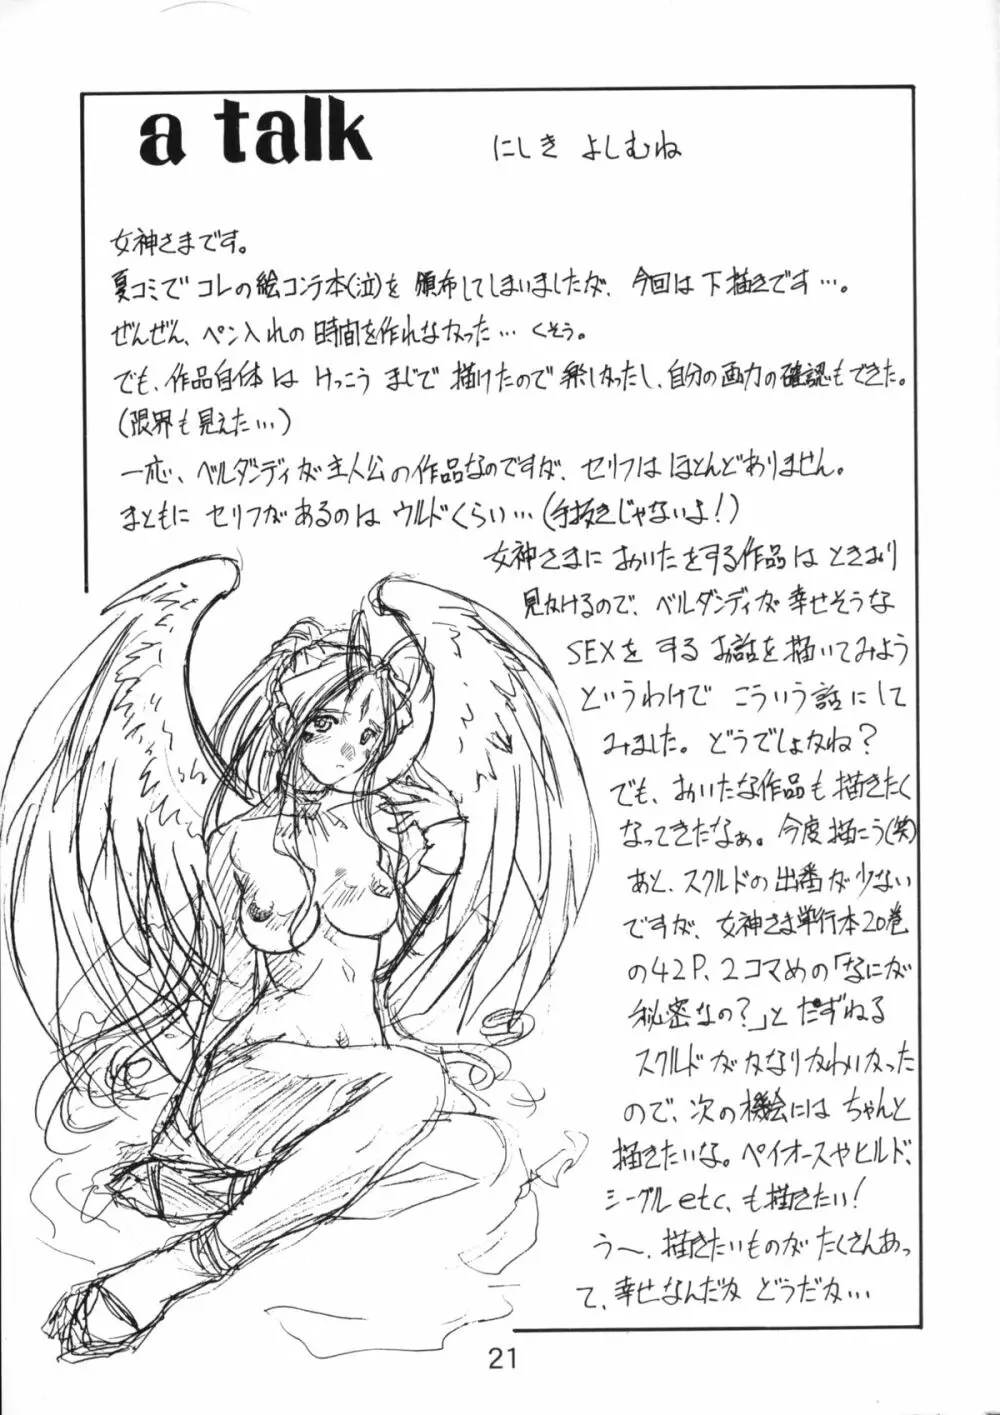 a talk
にしき よしむね
女神さまです。
夏コミで コレの絵コンテ本(泣)を 頒布してしまいましたが、今回は 下描きです…。
ぜんぜん、ペン入れの時間を作れなかった… くそう。
でも、作品自体は けっこう まじで 描けたので 楽しかったし、自分の画力の確認もできた。
(限界も見えた…)
一応、ベルダンディが主人公の作品なのですが、セリフは ほとんどありません。
まともに セリフがあるのは ウルドくらい…(手抜きじゃないよ!)
女神さまに おいたをする作品は ときおり
見かけるので、ベルダンディが 幸せそうな
SEXを する お話を描いてみよう
というわけで こういう話にして
みました。どうでしょかね?
でも、おいたな作品も描きたく
なってきたなぁ。今度描こう(笑)
あと、スクルドの出番が少ない
ですが、女神さま単行本20巻
の42P、2コマめの「なにが
秘密なの?」と たずねる
スクルドが かなりかわいかった
ので、次の機会には ちゃんと
描きたいな。ペイオースやヒルド、
シーグル etc、も描きたい!
う〜、描きたいものが たくさんあっ
て、幸せなんだか どうだか…
21